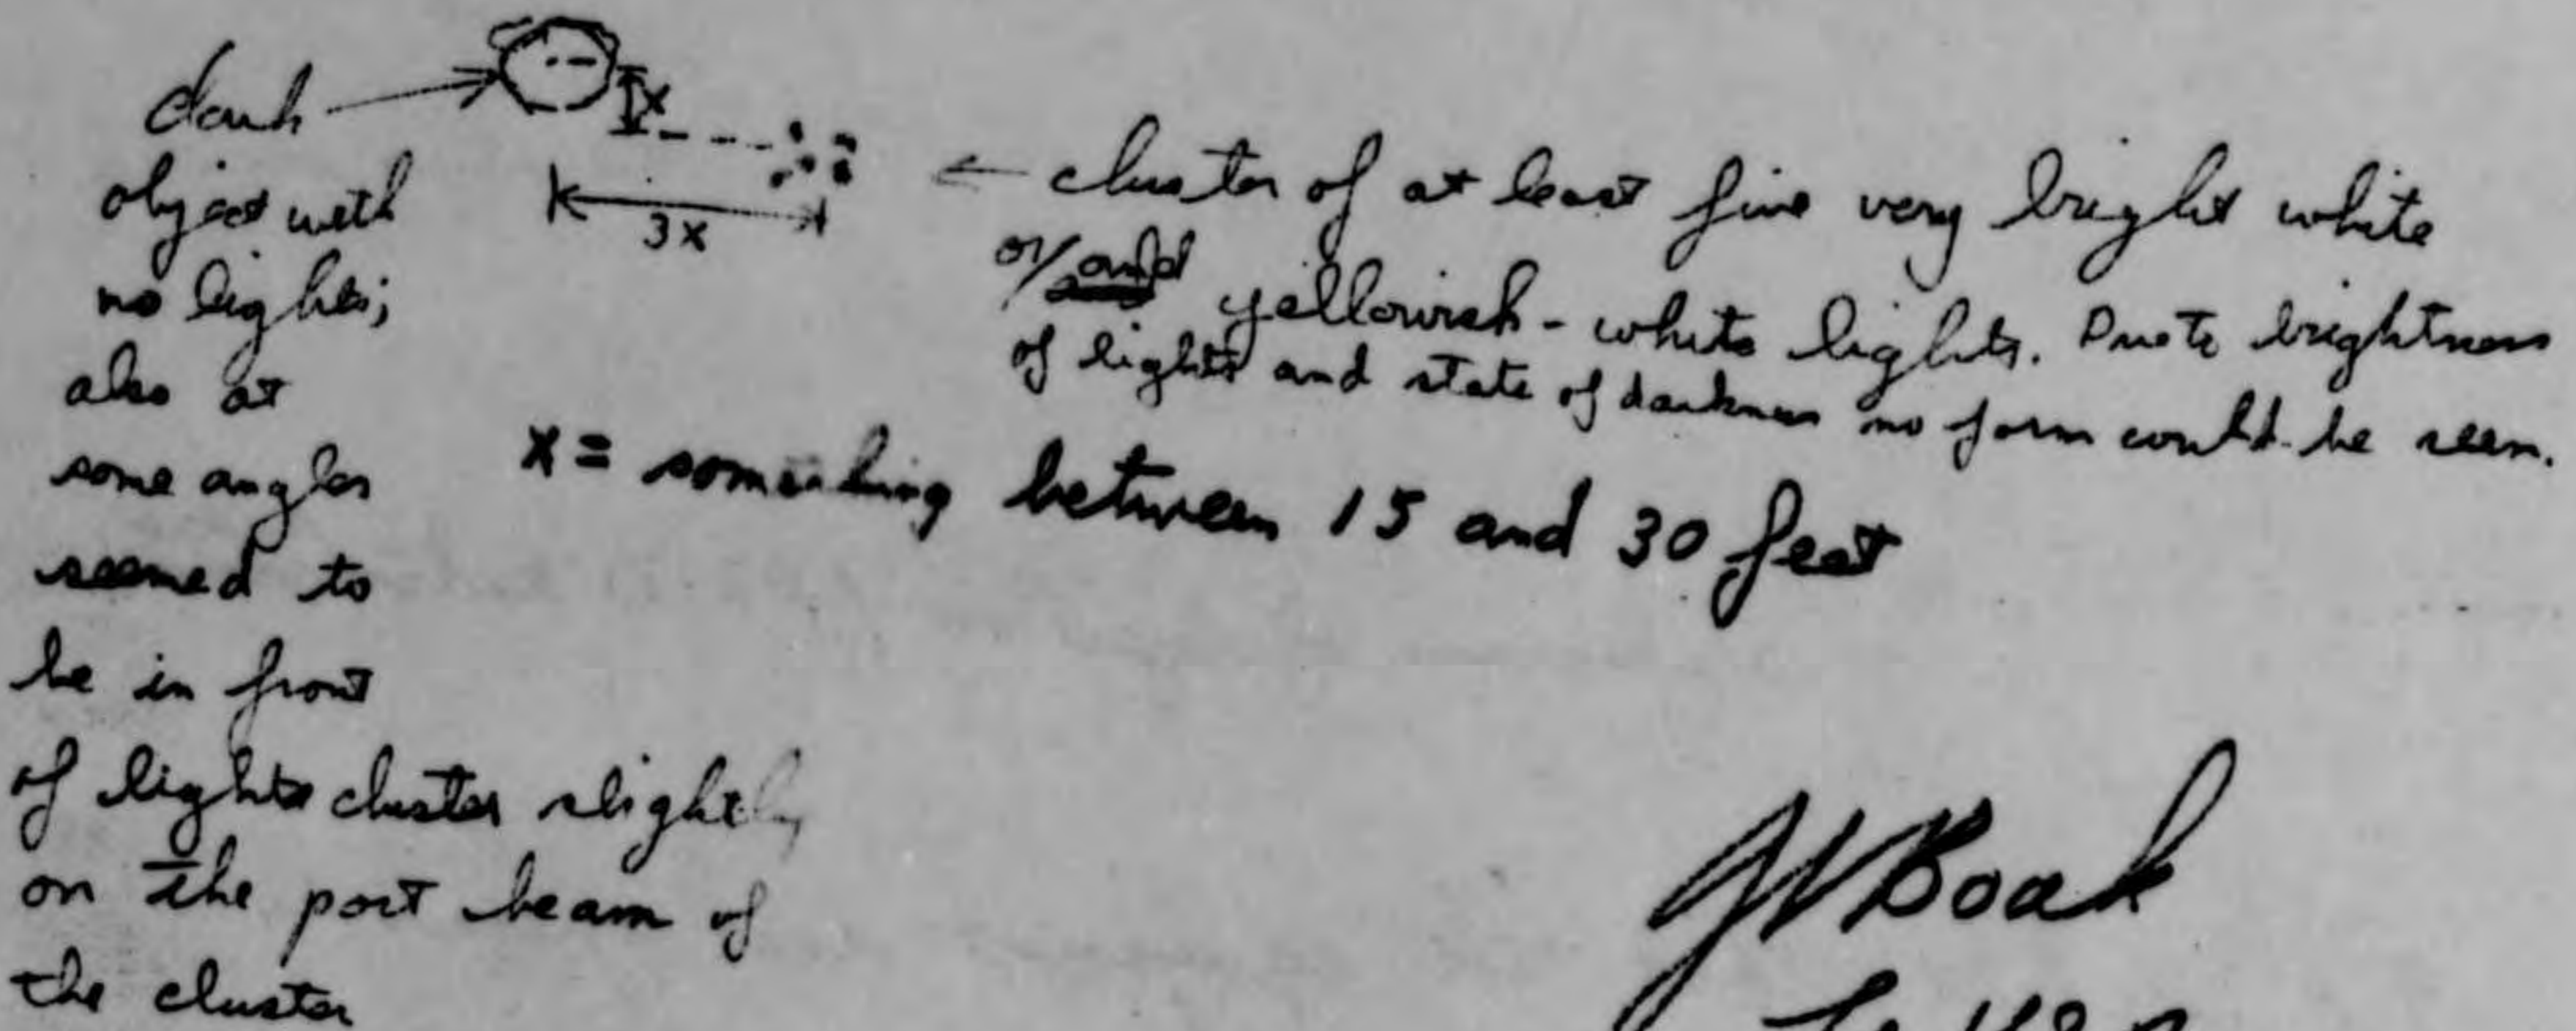 dark
object with
no lights;
also at
some angles
seemed to
be in front
of lights cluster slightly
on the port beam of
the cluster
x
3x
← cluster of at least five very bright white
or/and yellowish-white lights. Due to brightness
of lights and state of darkness no form could be seen.
x = something between 15 and 30 feet
JW Boak